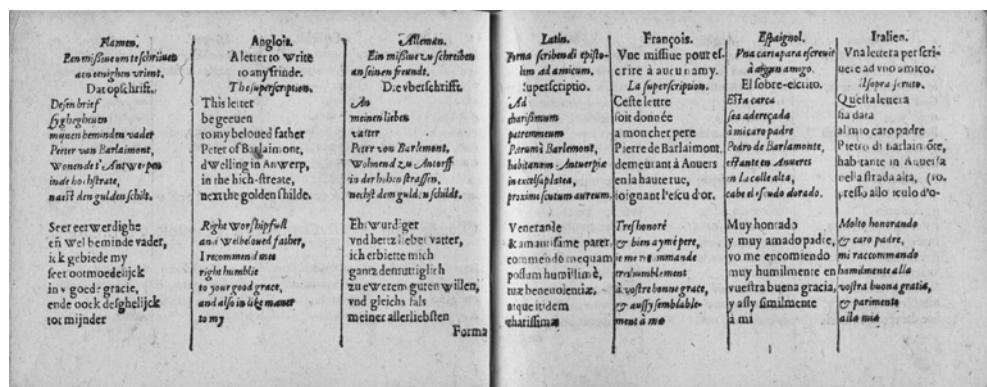 Flamen.
Een missiue om te schriiuen
aen eenighen vrient.
Dat opschrift.
Desen brief
sy ghegheuen
mynen beminden vader
Peeter van Barlaimont,
Wonende t'Antwerpen
inde hochstrate,
naest den gulden schilt.
Seer eerwerdighe
en wel beminde vader,
ick gebiede my
seer ootmoedelijck
in v goede gracie,
ende oock desghelijck
tot mijnder
Anglois.
A letter to write
to any frinde.
The superscription.
This letter
be geeuen
to my beloued father
Peter of Barlaimont,
dwelling in Anwerp,
in the hich-streate,
next the golden shilde.
Right worshipfull
and welbeloued father,
I recommend mee
right humblie
to your good grace,
and also in like maner
to my
Alleman.
Ein missiue zu schreiben
an seinen freundt.
Die vberschrifft.
An
meinen lieben
vatter
Peter von Barlemont,
Wohnend zu Antorff
in der hohen strassen,
nechst dem gulden schildt.
Ehrwurdiger
vnd hertzlieber vatter,
ich erbiette mich
gantz demuttiglich
zu ewerem guten willen,
vnd gleichs fals
meiner allerliebsten
Forma
Latin.
Forma scribendi episto-
lam ad amicum.
Superscriptio.
Ad
charissimum
patrem meum
Petrum à Barlemont,
habitantem Antuerpiæ
in excelsa platea,
proxime scutum aureum.
Venerande
& amantissime pater,
commendo me quam
possum humillimè,
tuæ beneuolentiæ,
atque itidem
charissimæ
François.
Vne missiue pour es-
crire à aucun amy.
La superscription.
Ceste lettre
soit donnée
a mon cher pere
Pierre de Barlaimont,
demeurant à Anuers
en la haute rue,
ioignant l'escu d'or.
Tres honoré
& bien aymé pere,
ie me recommande
tres humblement
à vostre bonne grace,
& aussy semblable-
ment à ma
Espaignol.
Vna carta para escreuir
à algun amigo.
El sobre-escrito.
Esta carta
sea adereçada
à mi caro padre
Pedro de Barlamonte,
estante en Anueres
en la calle alta,
cabe el escudo dorado.
Muy honrado
y muy amado padre,
yo me encomiendo
muy humilmente en
vuestra buena gracia,
y assy similmente
à mi
Italien.
Vna lettera per scri-
uere ad vno amico.
Il sopra scritto.
Questa lettera
sia data
al mio caro padre
Pietro di Barlaimote,
habitante in Anuersa
nella strada alta,
presso allo scudo d'o-
(ro.
Molto honorando
& caro padre,
mi raccommando
humilmente alla
vostra buona gratia,
& parimente
alla mia